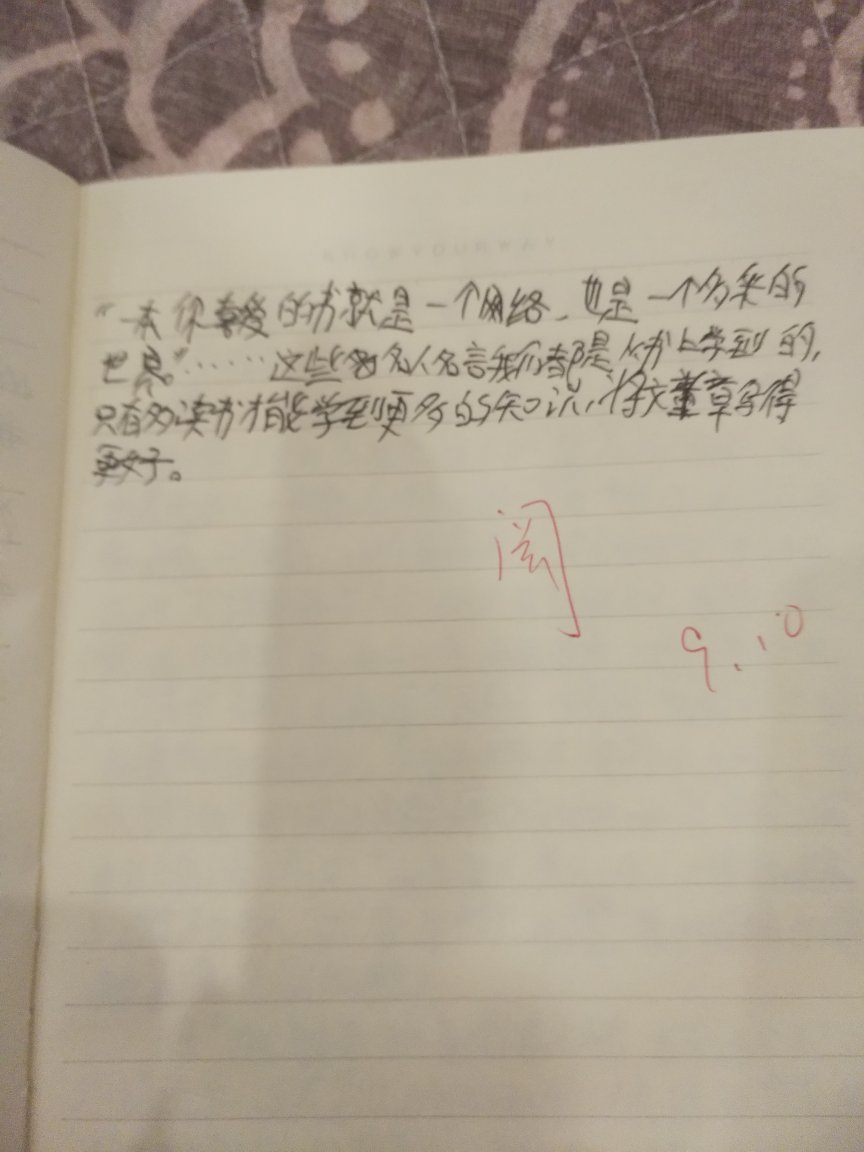 KNOWYOURWAY
“一本你喜爱的书就是一个网络、也是一个多采的
世界。”……这些名人名言我们都是从书上学到的,
只有多读书才能学到更多的知识,将文章写得
更好。
阅
9.10